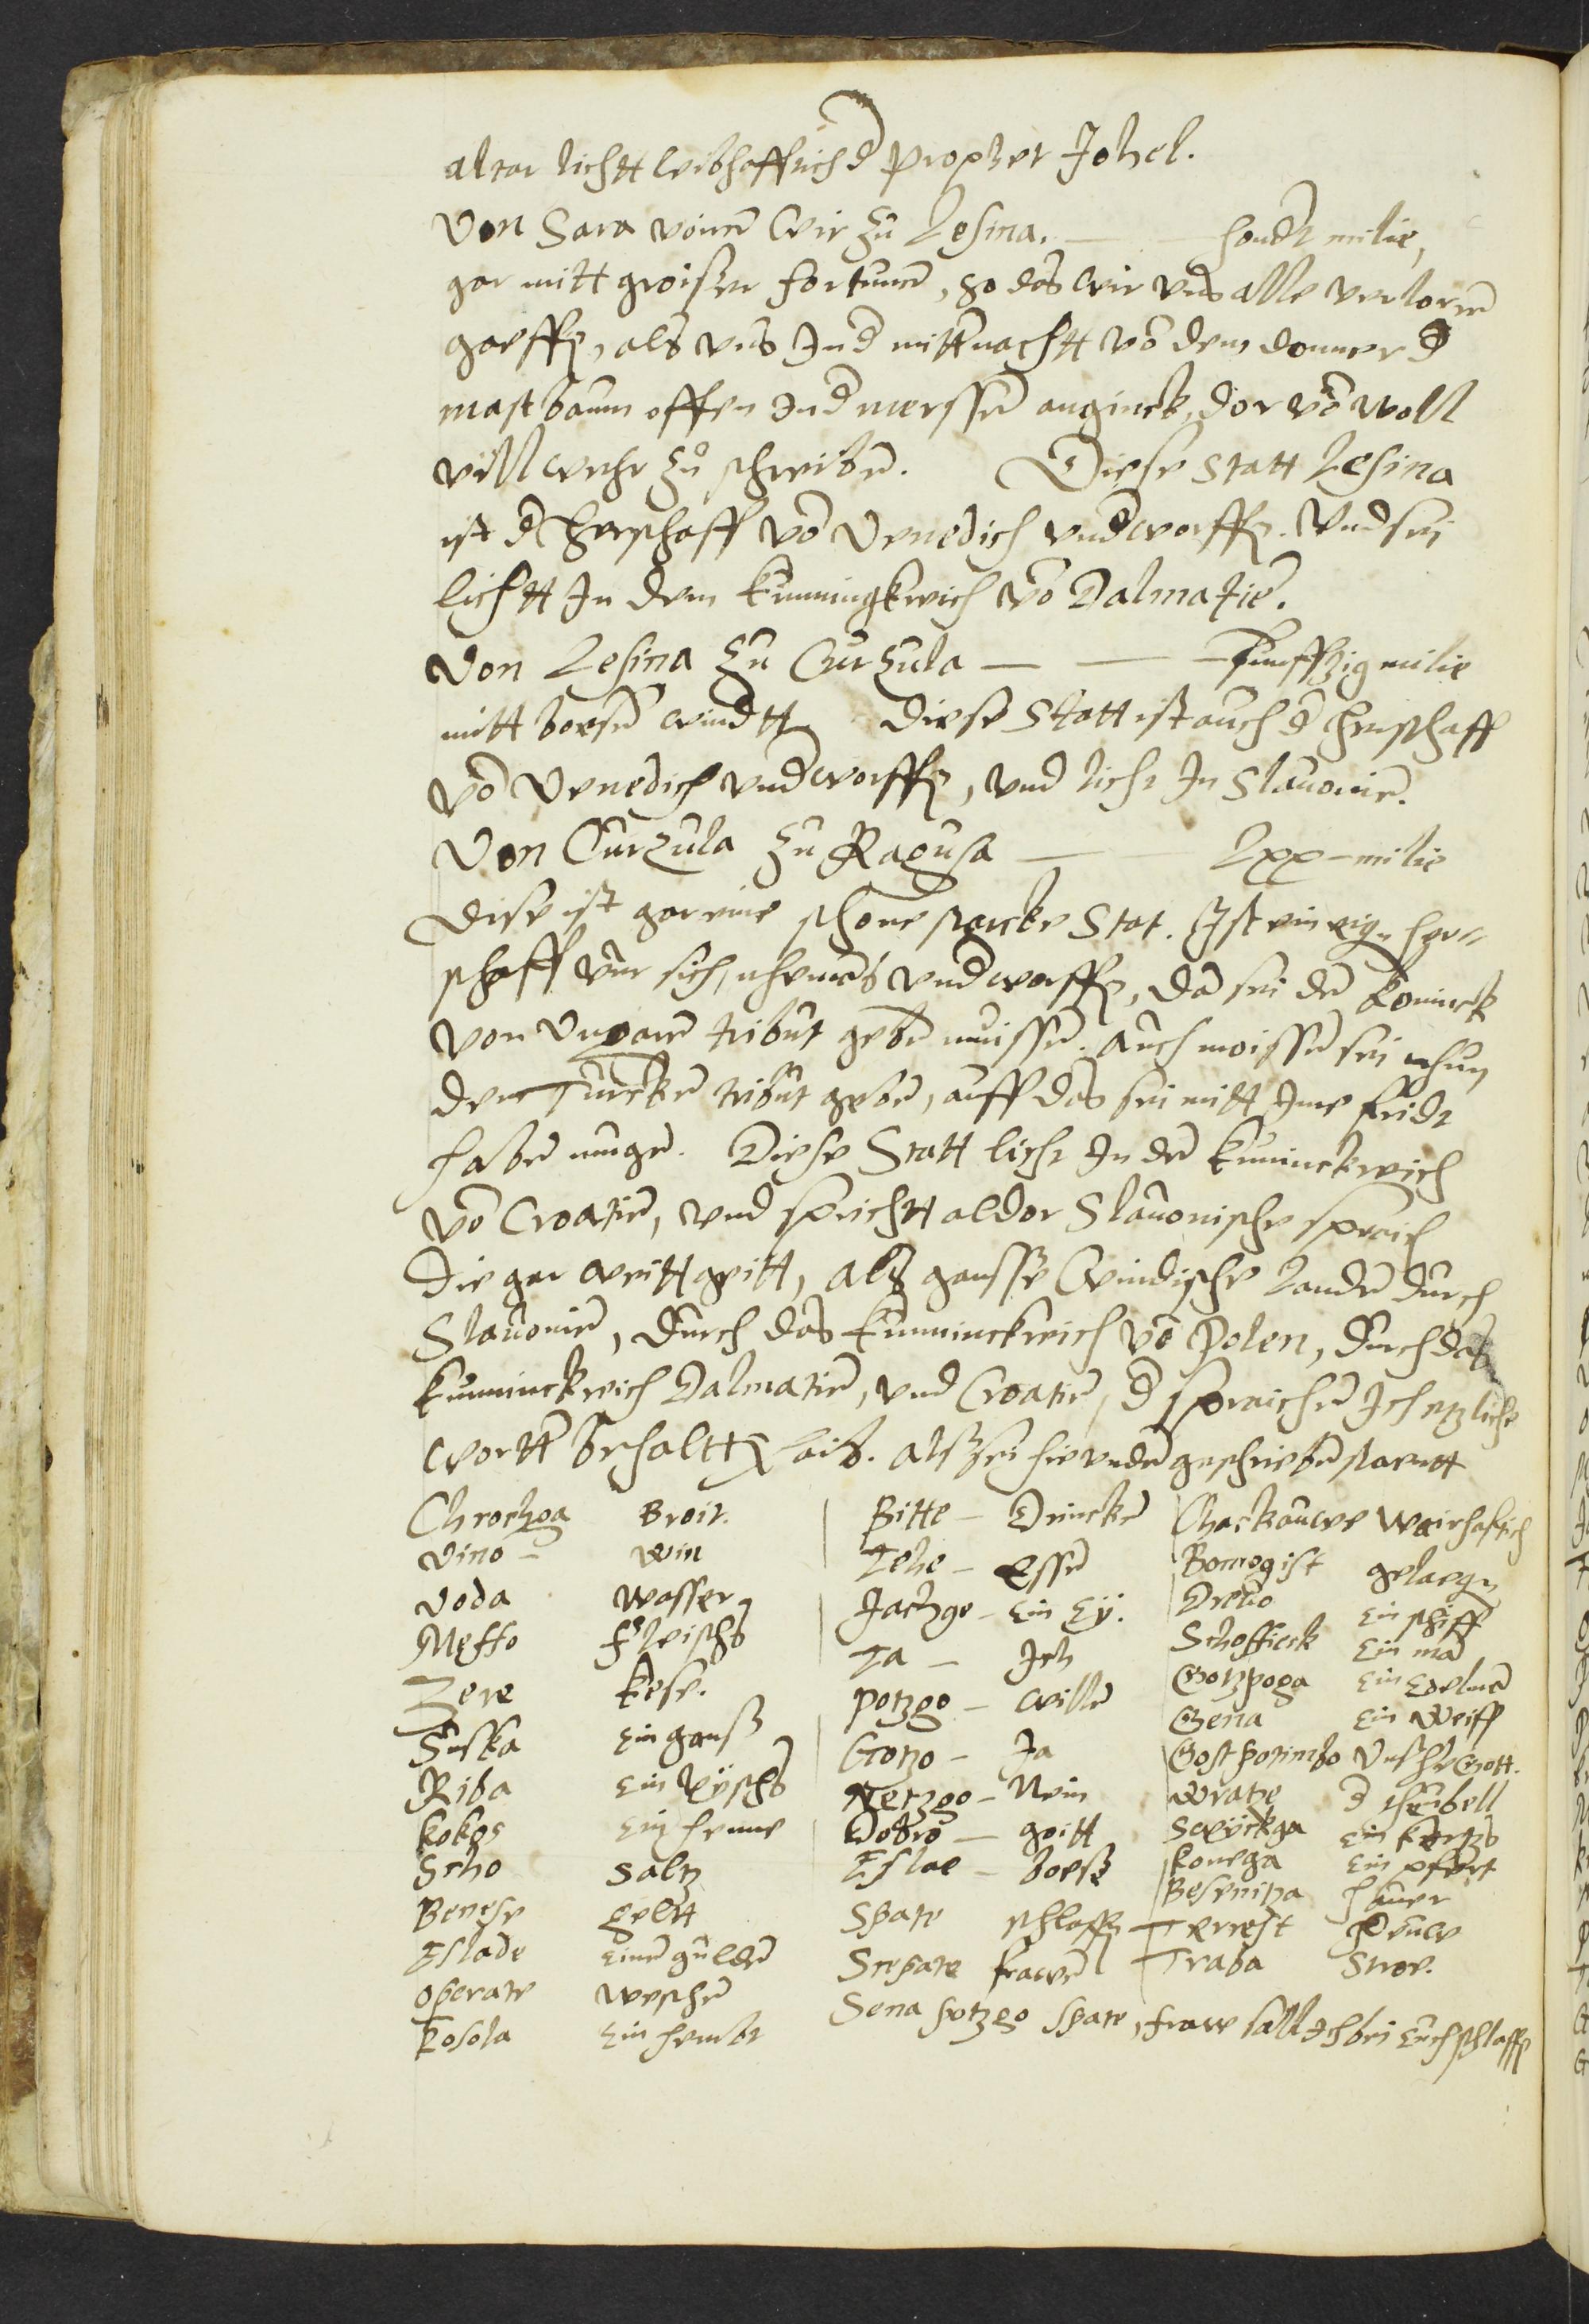 altar lichtt leibhafftich d prophet Johel.
Von Sara voiren wir zu Lesina. — hondt milie,
gar mitt groisser fortunen, so das wir uns alle verloren
gaeffen, als uns Ind mittnacht vo dem donner d
mastbaum offen ind merssen anginck, dar vo woll
vill wehr zu schreiben. Diese Statt Lesina
ist d herschaff vo Venedich undworffen. Und sei
lichtt In dem kunningkreich vo Dalmatien.
Von Lesina zu Curzula — — funffzig milie
mitt boesen windtt Diese Statt ist auch d herschaff
vo Venedich undworffen, und licht In Slauonien.
Von Curzula zu Ragusa — Lxx — milie
Dise ist gar eine schone starcke Stat. Ist ein eigen her=
schaff vur sich, niemans undworffen, dan sei den Koninck
von Ungaren tribut geben muissen. Auch moissen sei nhun
dem Turcken tribut geben, auff das sei mitt Ime fridt
haben mugen. Diese Statt licht In den kuninckreich
vo Croatien, und sprichtt aldar Slauonische spraich
Die gar weitt geitt, als gansse Windische landen durch
Slauonien, durch das kunninckreich vo Polen, durch das
kunninckreich Dalmatien, und Croatien, d spraichen Ich etzliche
wortt behaltten haib. als sei hie unden geschrieben staentt
Chrochga Broit. Bitte — Drincken Chackauwe Wairhafftich
Vino — Win Iehe — Essen Bornogist gelaegen
Voda Wasser Jachge — Ein Ey. Dreuo Ein schiff
Messo fleischs Ia — Ich Schoffieck Ein man
Zere kese. potzgo — willen Gotzpoga Ein Edelman
Suska Ein ganss Gotzo — Ja Gena Ein Weiff
Riba Ein Vyschs Netzgo — Nein Gostpotimbo Unsehr Gott.
kokos Ein henne Dobro — goitt Wratze d theubell
Scho Saltz Eslae — boess Swyckga Ein kertzs
Benese Geltt Spate schlaffen konega Ein pfertt
Eslade Einen gulden Srepate frawen Besenitza hauer
operate weschen Terrest
kosola Ein hembt Traba Stroe.
Sena potzgo spate, fraw sall Ich bei Euch schlaffen